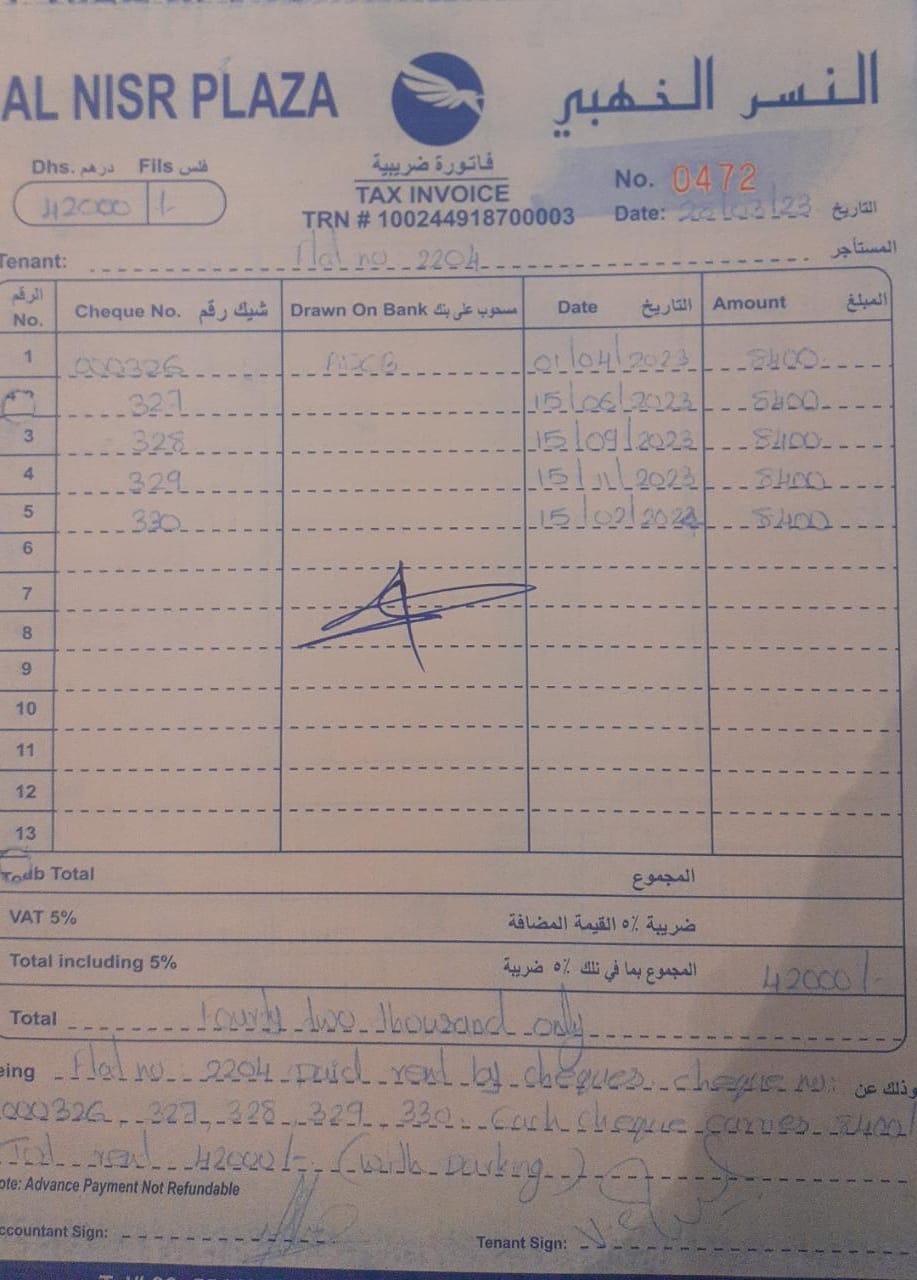 AL NISR PLAZA النسر الذهبي
Dhs. درهم Fils فلس
42000 /-
فاتورة ضريبية
TAX INVOICE
TRN # 100244918700003
No. 0472
Date: /03/23 التاريخ
Tenant: Flat no 2204 المستأجر
الرقم No. Cheque No. شيك رقم Drawn On Bank مسحوب على بنك Date التاريخ Amount المبلغ
1 000326 01/04/2023 8400
327 15/06/2023 8400
3 328 15/09/2023 8400
4 329 15/11/2023 8400
5 330 15/02/2024 8400
6
7
8
9
10
11
12
13
Total المجموع
VAT 5% ضريبة ٥٪ القيمة المضافة
Total including 5% المجموع بما في ذلك ٥٪ ضريبة 42000/-
Total Fourty two thousand only
eing Flat no: 2204 Paid rent by cheques. cheque no: وذلك عن
000326, 327, 328, 329, 330. Each cheque carries 8400/
rent 42000/- (with Parking)
ote: Advance Payment Not Refundable
ccountant Sign:
Tenant Sign: